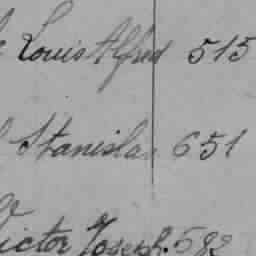 Louis Alfred 515
Stanislas 651
Victor Joseph. 582